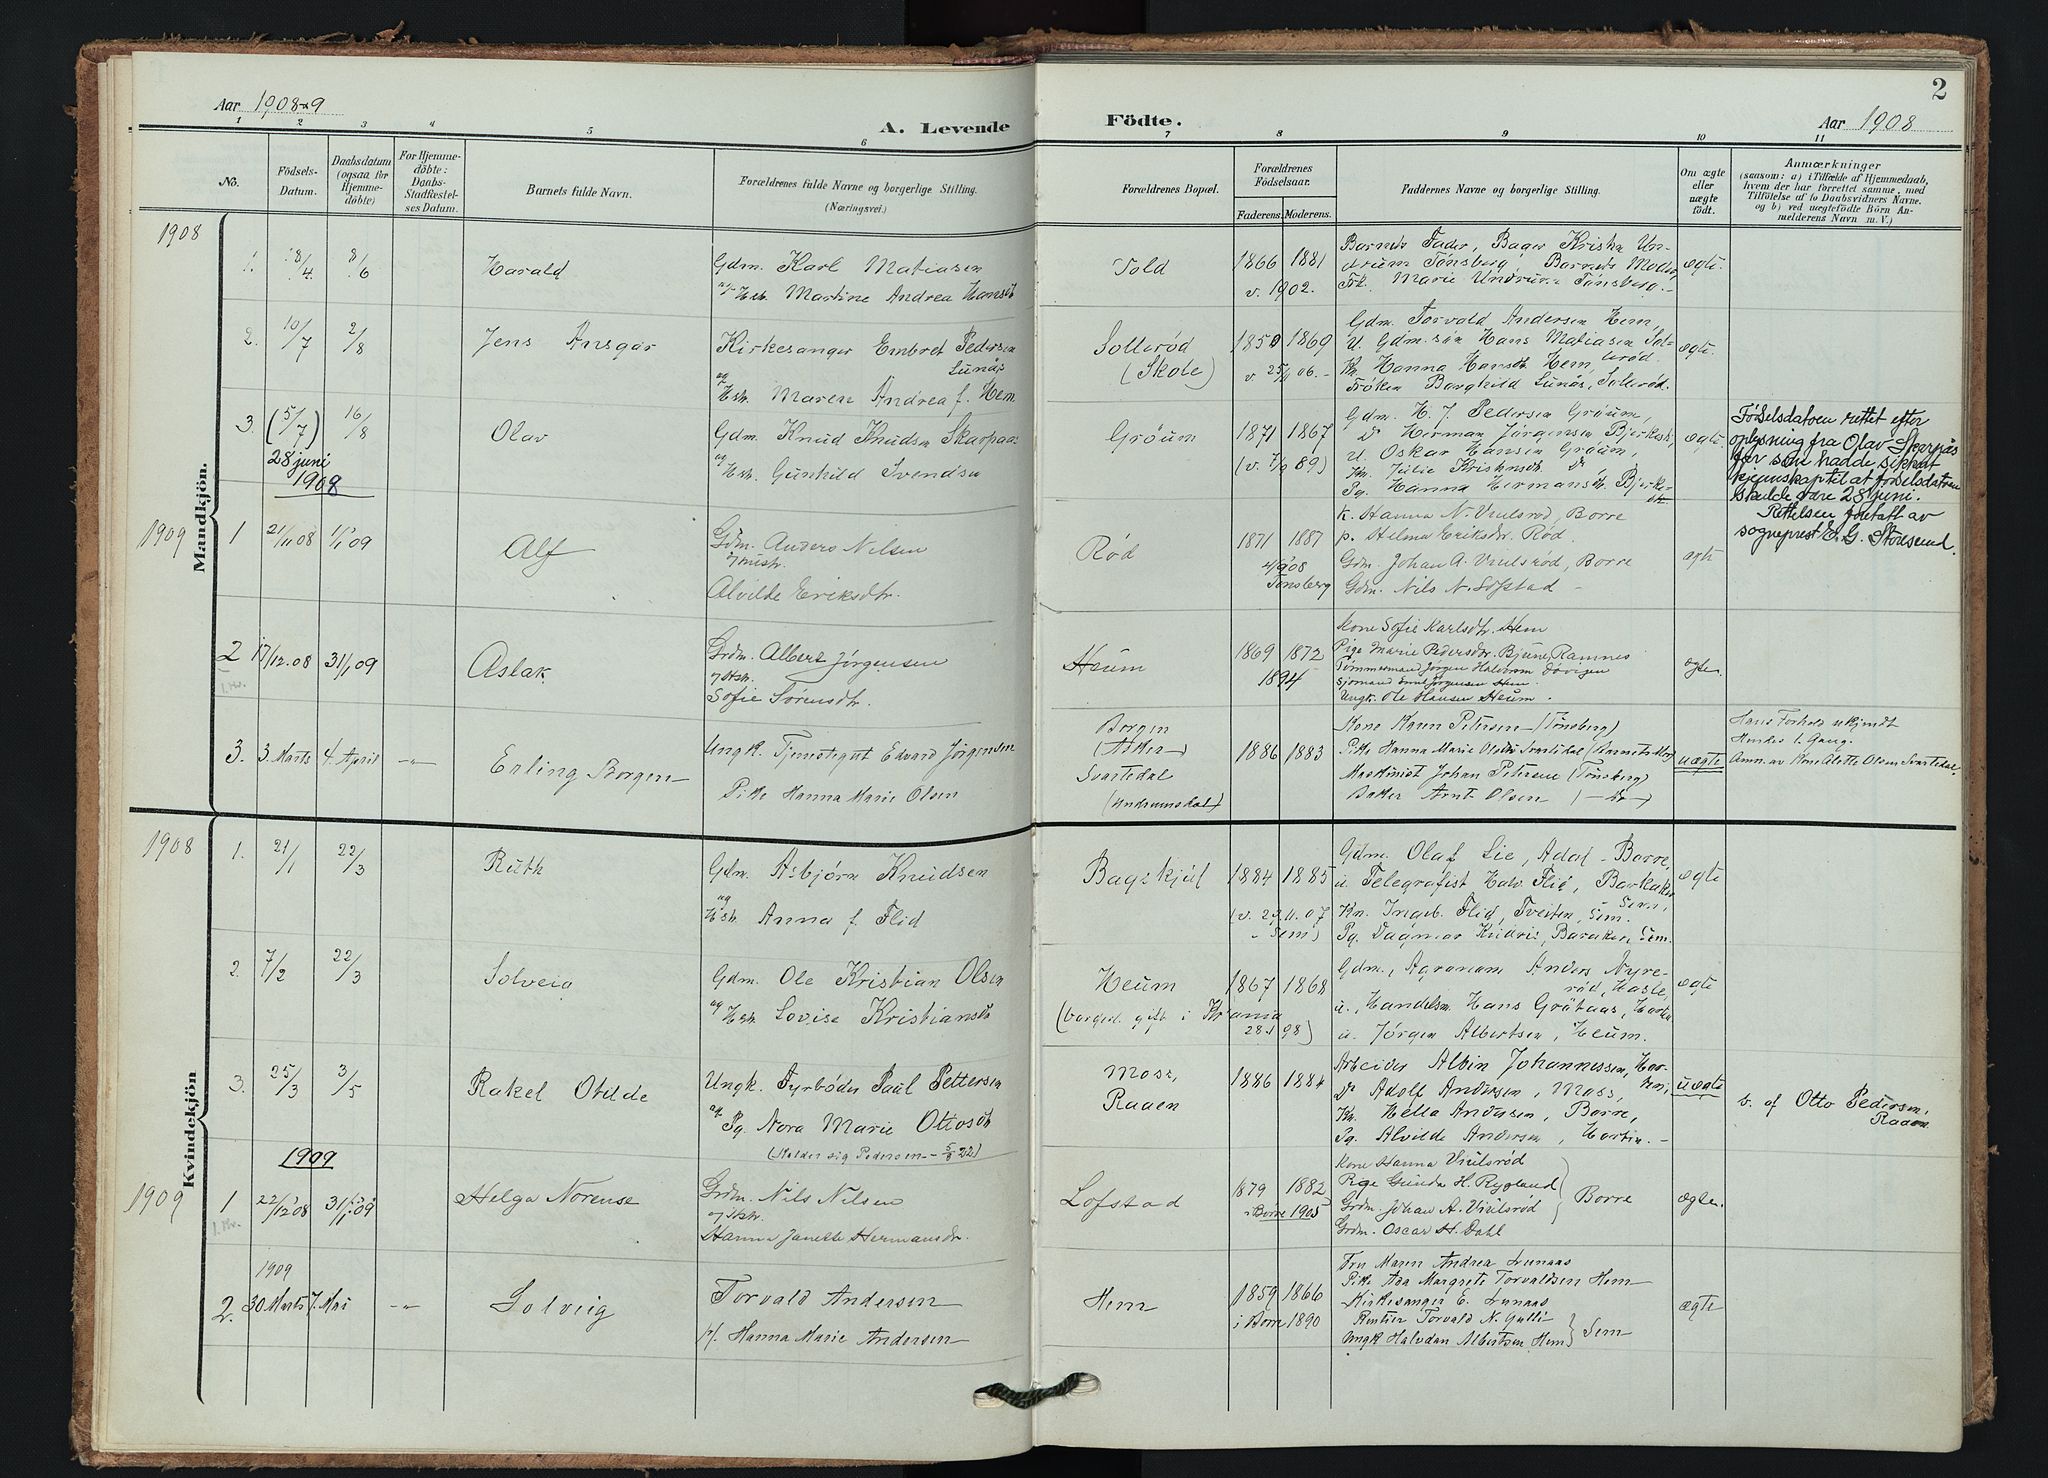 Aar 1908 & 9
A. Levende
Födte.
Aar 1908
2
1 2 3 4 5 6 7 8 9 10 11
No.
Födsels-
Datum.
Daabsdatum
(ogsaa for
Hjemme-
döbte)
For Hjemme-
döbte:
Daabs-
Stadfæstel-
ses Datum.
Barnets fulde Navn.
Forældrenes fulde Navne og borgerlige Stilling.
(Næringsvei.)
Forældrenes Bopæl.
Forældrenes
Födselsaar.
Faderens. Moderens.
Faddernes Navne og borgerlige Stilling.
Om ægte
eller
uægte
födt.
Anmærkninger
(saasom: a) i Tilfælde af Hjemmedaab,
hvem der har forrettet samme, med
Tilföielse af to Daabsvidners Navne.
og b) ved uægtefödte Börn An-
melderens Navn m. V.)
Mandkjön.
1908
1. 18/4 8/6 Harald
Gdm. Karl Matiasen
og Hstr. Martine Andrea Hansdt
Told
1866 1881
v. 1902.
Barnets Fader, Bager Kristn Un-
drum Tønsberg, Barnets Moder,
Frk. Marie Undrum Tønsberg.
ægte
2. 10/7 2/8 Jens Ansgar
Kirkesanger Embret Pedersen
Lunås
og
Hstr. Maren Andrea f. Hem
Solerød
(Skole)
1850 1869
v. 25/11 06.
Gdm. Torvald Andersen Hem,
U. Gdm.søn Hans Matiasen Sol-
erød.
Kn. Hanna Hansdt Hem,
Frøken Borghild Lunås, Solerød.
ægte.
3. (5/7) 16/8 Olav
28 juni
1908
Gdm. Knud Knudsen Skarpaas
og
Hstr. Gunhild Svendsen
Grøum
1871 1867
(v. 7/9 89)
Gdm. H. J. Pedersen Grøum,
Do Herman Jørgensen Bjerkesk,
U. Oskar Hansen Grøum,
Kn. Julie Kristnsdt Do,
Pg. Hanna Hermansdt. Bjerke-
ægte
Fødselsdatoen rettet efter
oplysning fra Olav Skarpås
før som hadde sikkat
kjennskap til at fødselsdatoen
skulde være 28 juni.
Rettelsen foretatt av
sogneprest E. G. Storesund.
1909
1 21/11 08 1/1 09 Alf
Gdm. Anders Nilsen
og hustr.
Alvilde Eriksdtr.
Rød
1871 1887
4/9 08
Tønsberg
K. Hanna N. Virilsrød, Borre
p. Hilma Eriksdtr. Rød.
Gdm. Johan A. Virilsrød, Borre
Gdm. Nils N. Lofstad
ægte
2 17/12.08 31/1 09 Aslak
1. Kv.
Grdm. Albert Jørgensen
og Hstr.
Sofie Sørensdtr.
Heum
1869 1872
1894
Kone Sofie Karlsdtr. Hem
Pige Marie Pedersdtr. Bjune, Ramnes
Tømmermand Jørgen Halvorsen Døvigen
Sjømand Emil Jørgensen Hem.
Ungk. Ole Hansen Heum.
ægte.
3. 3 Marts 4 April -"- Erling Borgen
Ungk. Tjenestegut Edvard Jørgensen
Pike Hanna Marie Olsen
Borgen
(Asker)
Svartedal
(Undrumsdal)
1886 1883
Kone Karen Petersen (Tønsberg)
Pike Hanna Marie Olsen Svartedal (Barnets Mor)
Maskinist Johan Petersen (Tønsberg)
Baker Arnt Olsen (-do-)
uægte
Hans Forhold ukjendt
Hendes 1. Gang.
Anm. av Kone Alette Olsen Svartedal.
Kvindekjön
1908
1. 21/1 22/3 Ruth
Gdm. Asbjørn Knudsen
og
Hstr. Anna f. Flid
Bagskjul
1884 1885
(v. 29.11.07
i Sem)
Gdm. Olaf Lie, Adal - Borre,
u. Telegrafist Halv. Flid, Barkaker
Sem,
Kn. Ingeb. Flid, Tveiten, Sem.
Pg. Dagmar Knidris, Baraker, Sem.
ægte
2. 7/2 22/3 Solveig
Gdm. Ole Kristian Olsen
og
Hstr. Lovise Kristiansdt
Heum
(borgerl. gift i Kr ania
28.1 98)
1867 1868
Gdm., Agronom Anders Nyre-
rød, Hasle,
u., Handelsm. Hans Gråtaas,
u. Jørgen Albertsen, Heum.
ægte
3. 25/3 3/5 Rakel Otilde
Ungk. Fyrbøder Paul Pettersen
og
Pg. Nora Marie Ottosdt
(Kalder sig Pedersen - 5/8 22)
Moss,
Raaen
1886 1884
Arbeider Albin Johannessen, Hor-
ten,
Do Adolf Andersen, Moss,
Kn. Hella Andersen, Borre,
Pg. Alvilde Andersen, Horten.
uægte
b. af Otto Pedersen,
Raaen
1909
1909
1 22/12 08 31/1 09 Helga Norense
1. Kv.
Grdm. Nils Nilsen
og Hstr.
Hanna Janette Hermansdr.
Lofstad
1879 1882
i Borre 1905
Kone Hanna Virilsrød
Pige Gunda H. Rygland
Grdm. Johan A. Virilsrød
Grdm. Oscar H. Dahl
Borre
ægte.
1909
2. 30 Marts 7. Mai -"- Solveig
Torvald Andersen
H. Hanna Marie Andersen
Hem
1859 1866
i Borre 1890
Fru Maren Andrea Lunaas
Pike Aaa Margrete Torvaldsen Hem
Kirkesanger E. Lunaas
Rentier Torvald N. Gulli
Ungk Halvdan Albertsen Hem
Sem
ægte